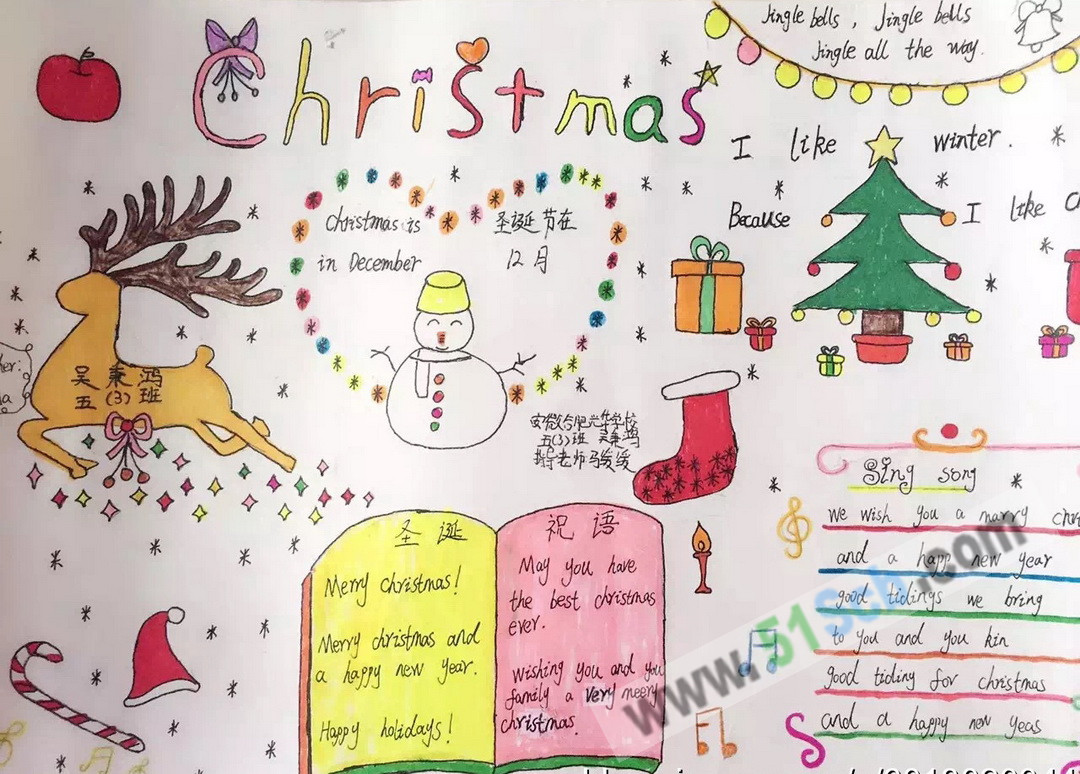 Jingle bells, Jingle bells
Jingle all the way.
Christmas
I like winter.
Because I like
Christmas is
in December
圣诞节在
12月
吴秉鸿
五(3)班
五(3)班 吴秉鸿
指导老师马媛媛
圣诞
Merry christmas!
Merry christmas and
a happy new year.
Happy holidays!
祝语
May you have
the best christmas
ever.
wishing you and you
family a very meery
christmas.
Sing song
we wish you a marry
and a happ new year
good tidings we bring
to you and you kin
good tiding for christmas
and a happy new yeas